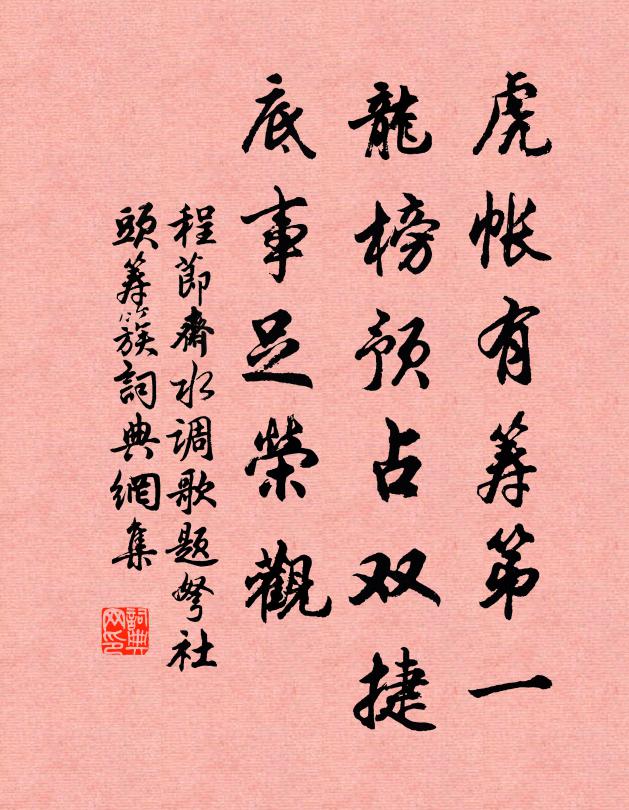 虎帐有筹第一
龍榜预占双捷
底事足榮觀
程節齋水调歌題弩社
頭筹簇詞典網集
詞典網印